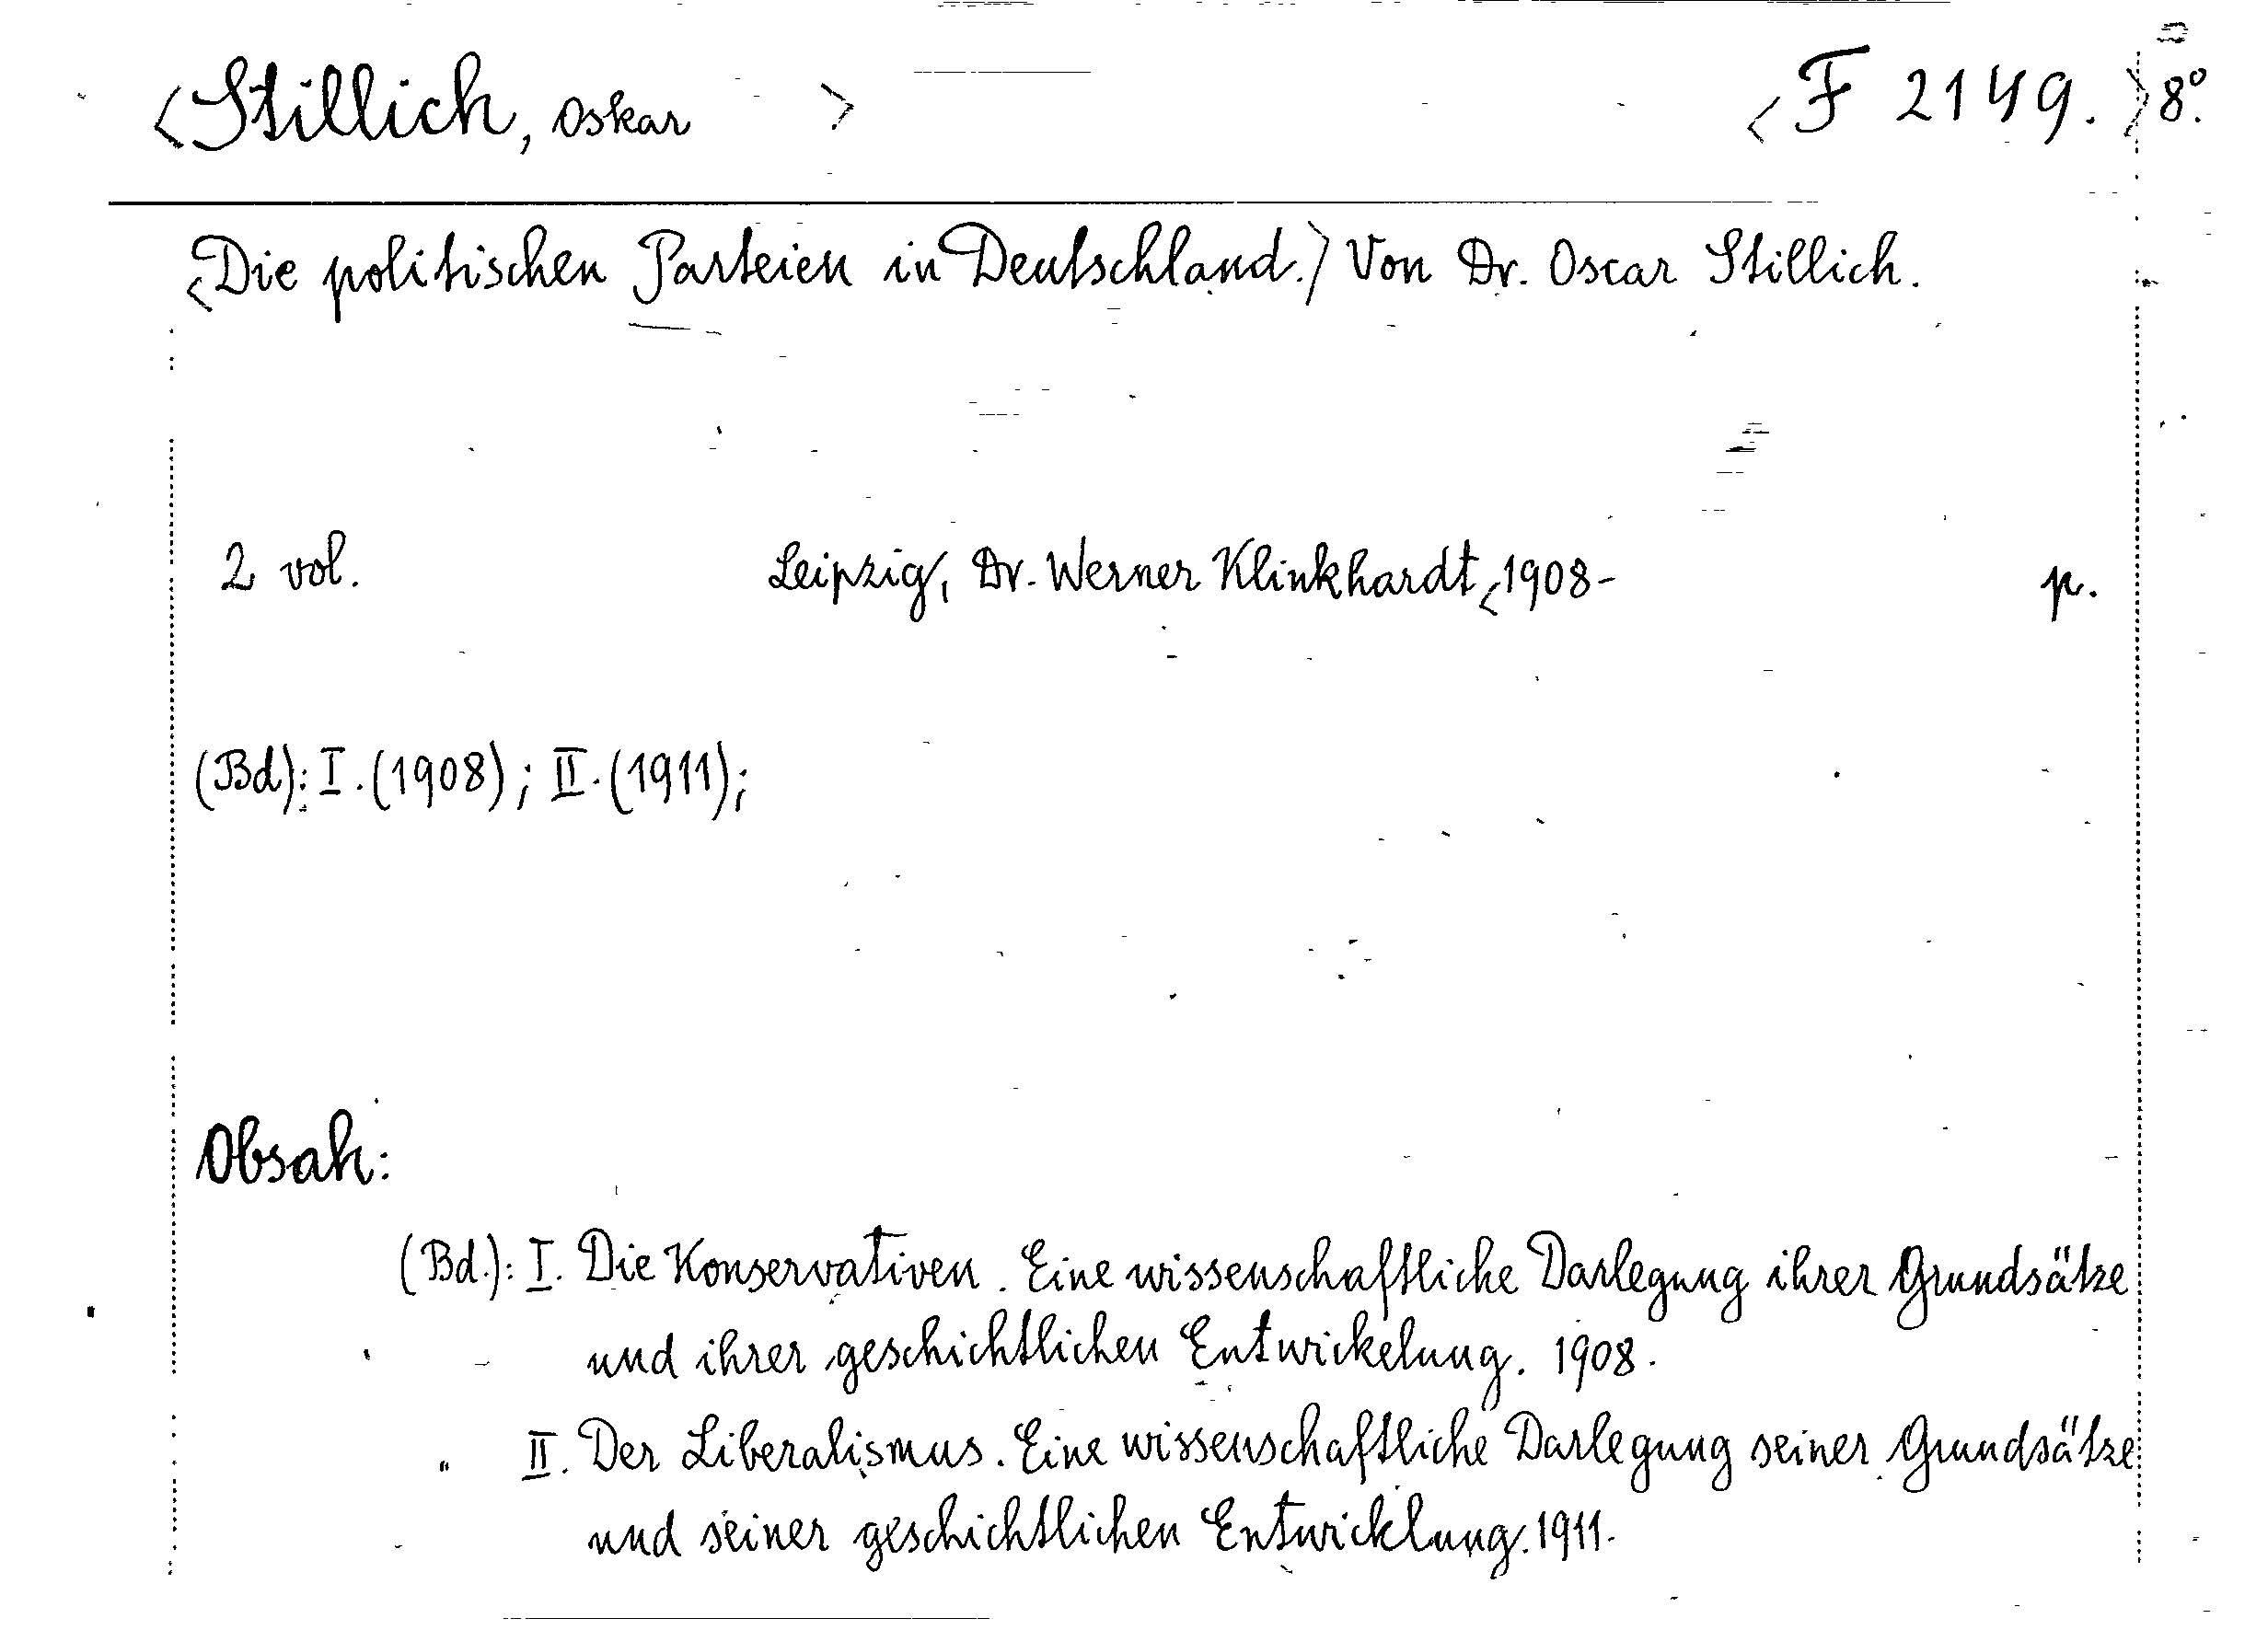 <Stillich, Oskar > <F 2149.> 8°.
<Die politischen Parteien in Deutschland.> Von Dr. Oscar Stillich.
2 vol. Leipzig, Dr. Werner Klinkhardt, <1908- p.
(Bd): I. (1908); II. (1911);
Obsah:
(Bd.): I. Die Konservativen. Eine wissenschaftliche Darlegung ihrer Grundsätze
und ihrer geschichtlichen Entwickelung. 1908.
" II. Der Liberalismus. Eine wissenschaftliche Darlegung seiner Grundsätze
und seiner geschichtlichen Entwicklung. 1911.